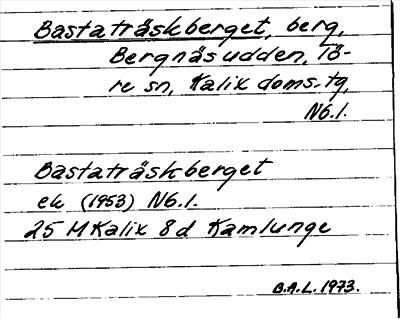 Bastaträskberget, berg,
Bergnäsudden, Tö-
re sn, Kalix doms.tg,
Nb.l.
Bastaträskberget
ek (1953) Nb.l.
25 M Kalix 8d Kamlunge
B.A.L. 1973.